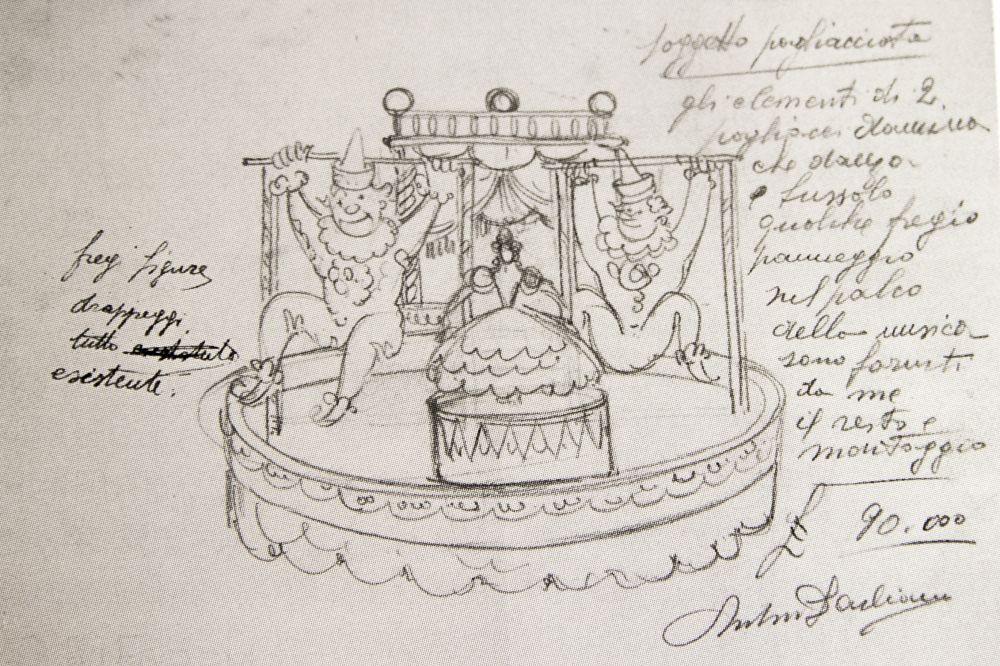 soggetto pagliacciata
gli elementi di 2
pagliacci
che
e tussolo
qualche fregio
panneggio
nel palco
della musica
sono forniti
da me
il resto e
montaggio
£ 90.000
fregi figure
drappeggi
tutto
esistente.